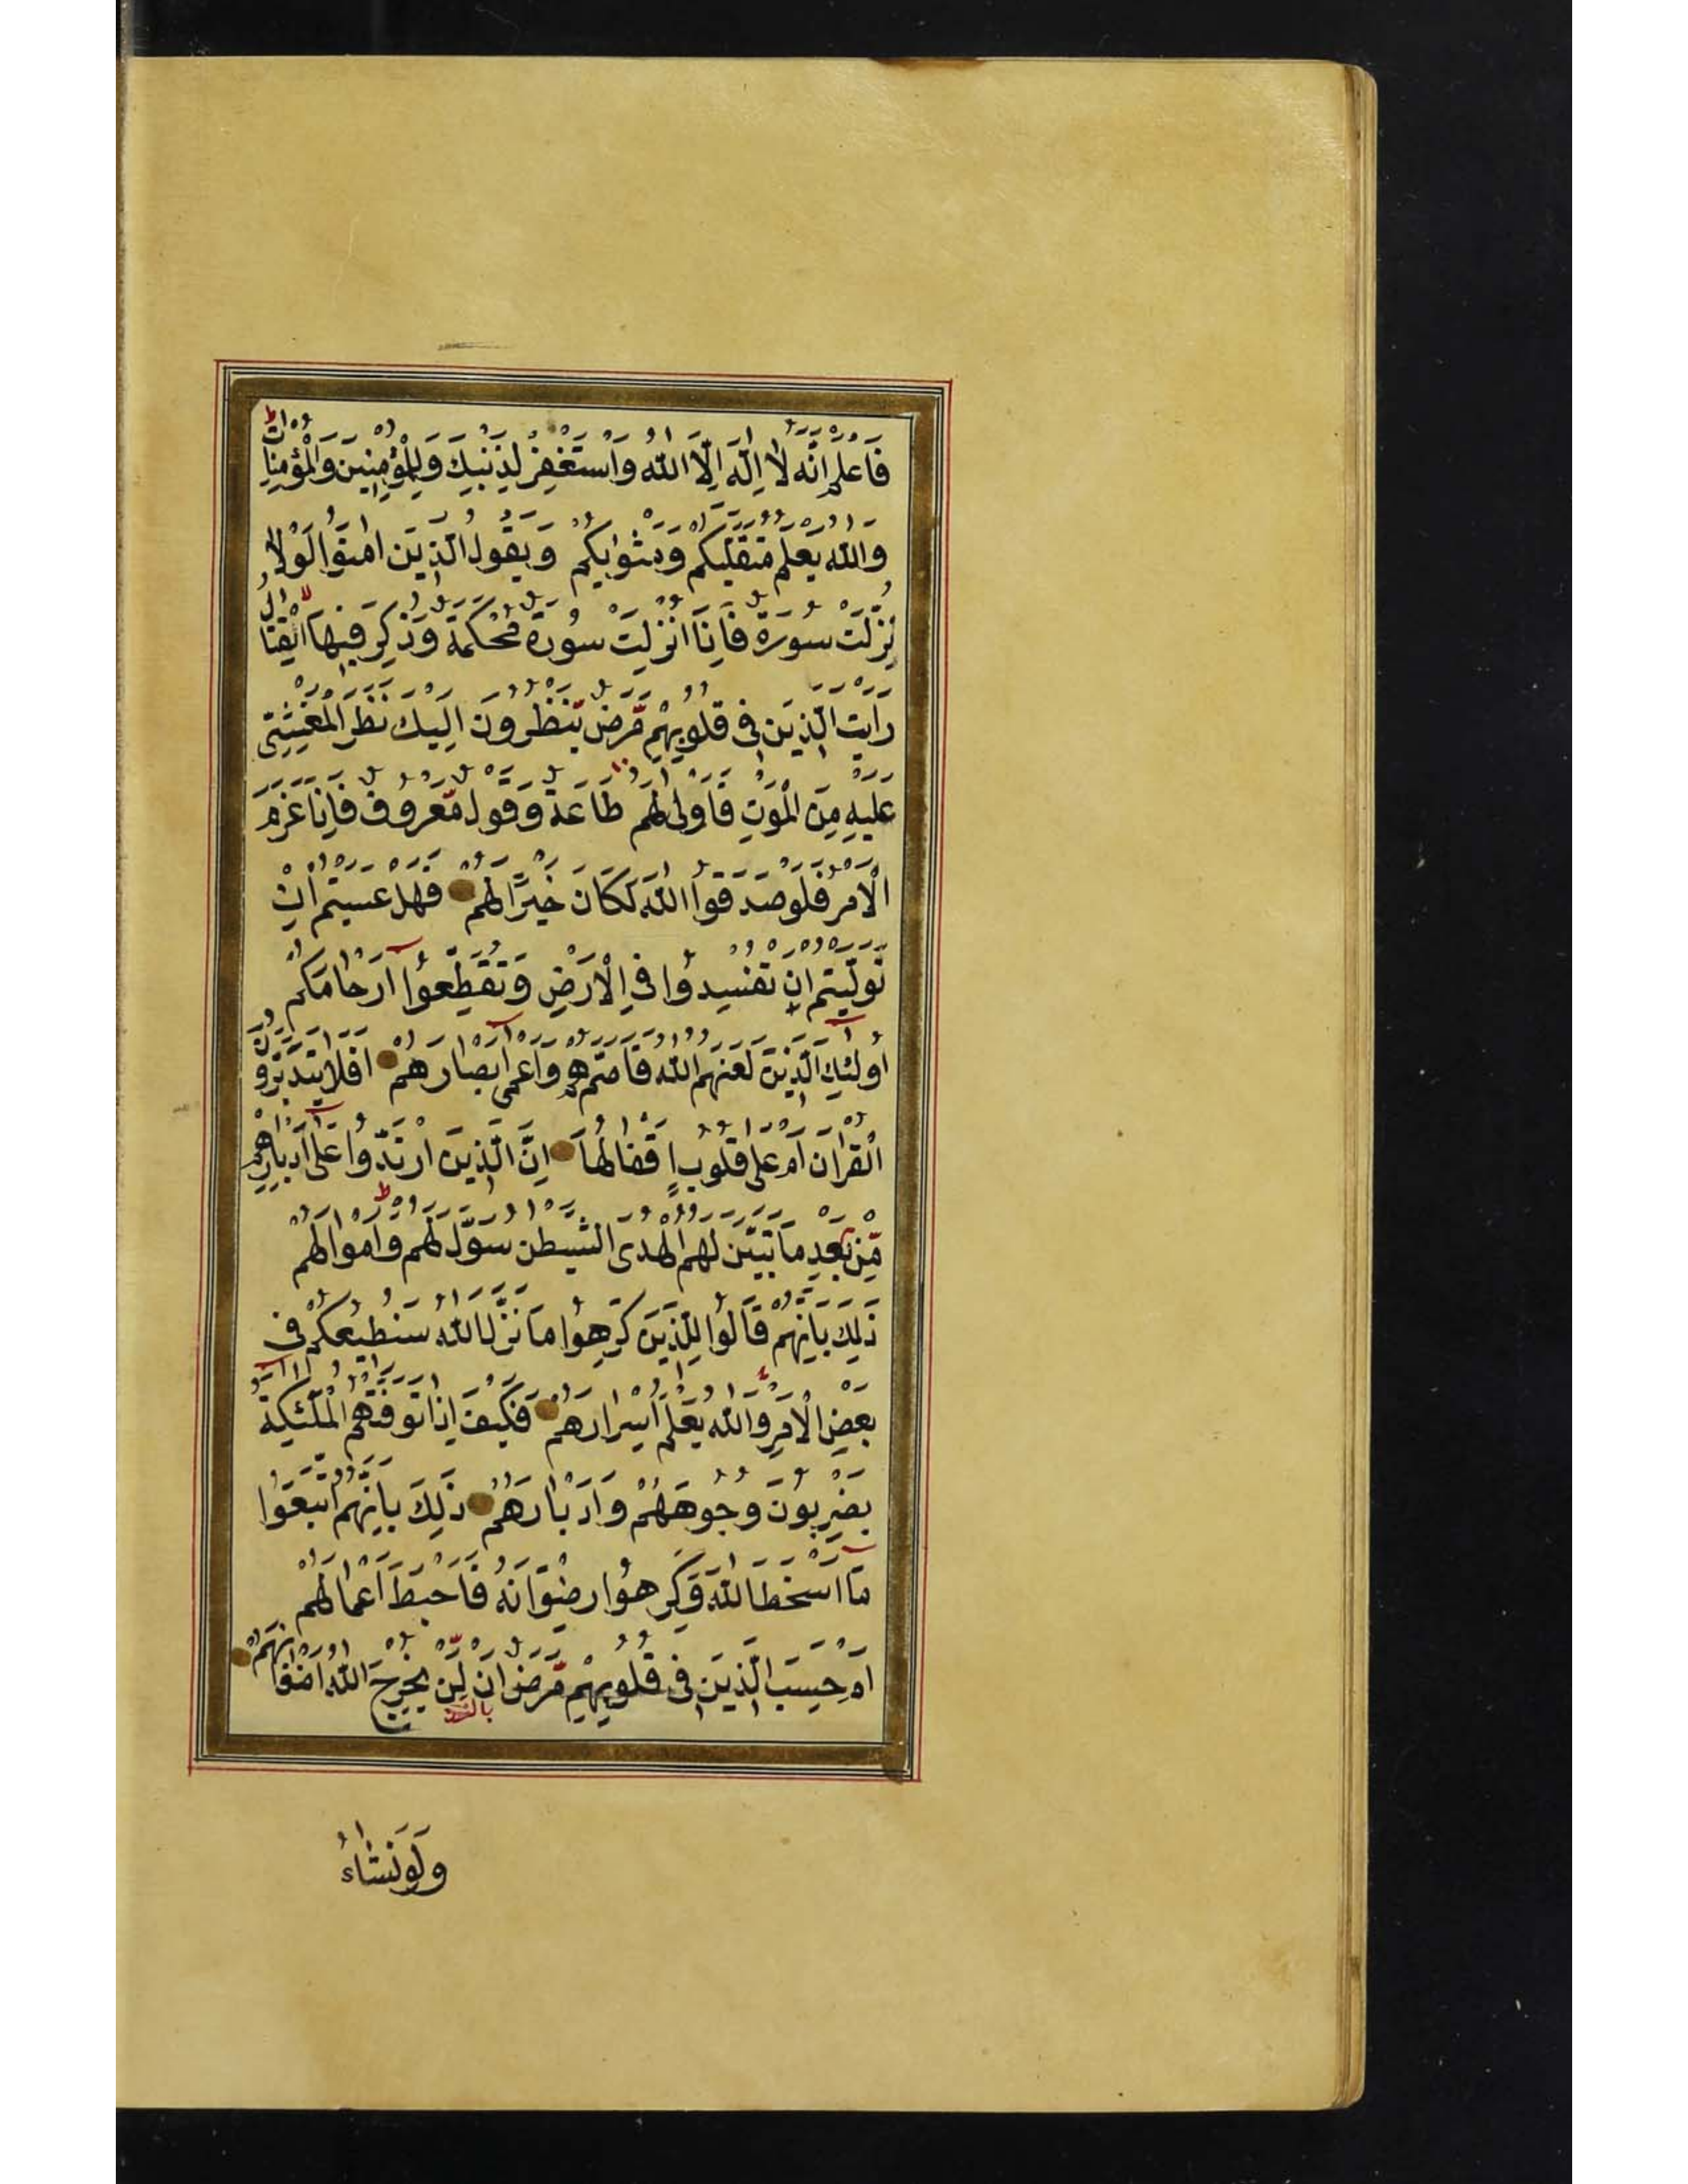 فَاعلم انّه لَا اِلٰهَ اِلَّا اللهُ وَاسْتَغْفِرْ لِذَنْبِكَ وَلِلْمُؤمِنِينَ وَالْمُؤمِنَاتِ
وَاللهُ يَعْلَمُ مُتَقَلَّبَكُمْ وَمَثْوٰيكُمْ وَيَقُولُ الَّذِينَ اٰمَنُوا لَوْلَا
نُزِّلَتْ سُورَةٌ فَاِذَا اُنْزِلَتْ سُورَةٌ مُحْكَمَةٌ وَذُكِرَ فِيهَا الْقِتَالُ
رَاَيْتَ الَّذِينَ فِى قُلُوبِهِمْ مَّرَضٌ يَّنْظُرُونَ اِلَيْكَ نَظَرَ الْمَغْشِىِّ
عَلَيْهِ مِنَ الْمَوْتِ فَاَوْلٰى لَهُمْ طَاعَةٌ وَقَوْلٌ مَّعْرُوفٌ فَاِذَا عَزَمَ
الْاَمْرُ فَلَوْ صَدَقُوا اللهَ لَكَانَ خَيْرًا لَهُمْ فَهَلْ عَسَيْتُمْ اِنْ
تَوَلَّيْتُمْ اَنْ تُفْسِدُوا فِي الْاَرْضِ وَتُقَطِّعُوا اَرْحَامَكُمْ
اُولٰئِكَ الَّذِينَ لَعَنَهُمُ اللهُ فَاَصَمَّهُمْ وَاَعْمٰى اَبْصَارَهُمْ اَفَلَا يَتَدَبَّرُونَ
الْقُرْاٰنَ اَمْ عَلٰى قُلُوبٍ اَقْفَالُهَا اِنَّ الَّذِينَ ارْتَدُّوا عَلٰى اَدْبَارِهِمْ
مِّنْ بَعْدِ مَا تَبَيَّنَ لَهُمُ الْهُدَى الشَّيْطٰنُ سَوَّلَ لَهُمْ وَاَمْوالَهُمْ
ذٰلِكَ بِاَنَّهُمْ قَالُوا لِلَّذِينَ كَرِهُوا مَا نَزَّلَ اللهُ سَنُطِيعُكُمْ فِى
بَعْضِ الْاَمْرِ وَاللهُ يَعْلَمُ اِسْرَارَهُمْ فَكَيْفَ اِذَا تَوَفَّتْهُمُ الْمَلٰٓئِكَةُ
يَضْرِبُونَ وُجُوهَهُمْ وَاَدْبَارَهُمْ ذٰلِكَ بِاَنَّهُمُ اتَّبَعُوا
مَا اَسْخَطَ اللهَ وَكَرِهُوا رِضْوَانَهُ فَاَحْبَطَ اَعْمَالَهُمْ
اَمْ حَسِبَ الَّذِينَ فِى قُلُوبِهِمْ مَّرَضٌ اَنْ لَّنْ يُخْرِجَ اللهُ اَضْغَانَهُمْ
وَلَوْ نَشَاءُ